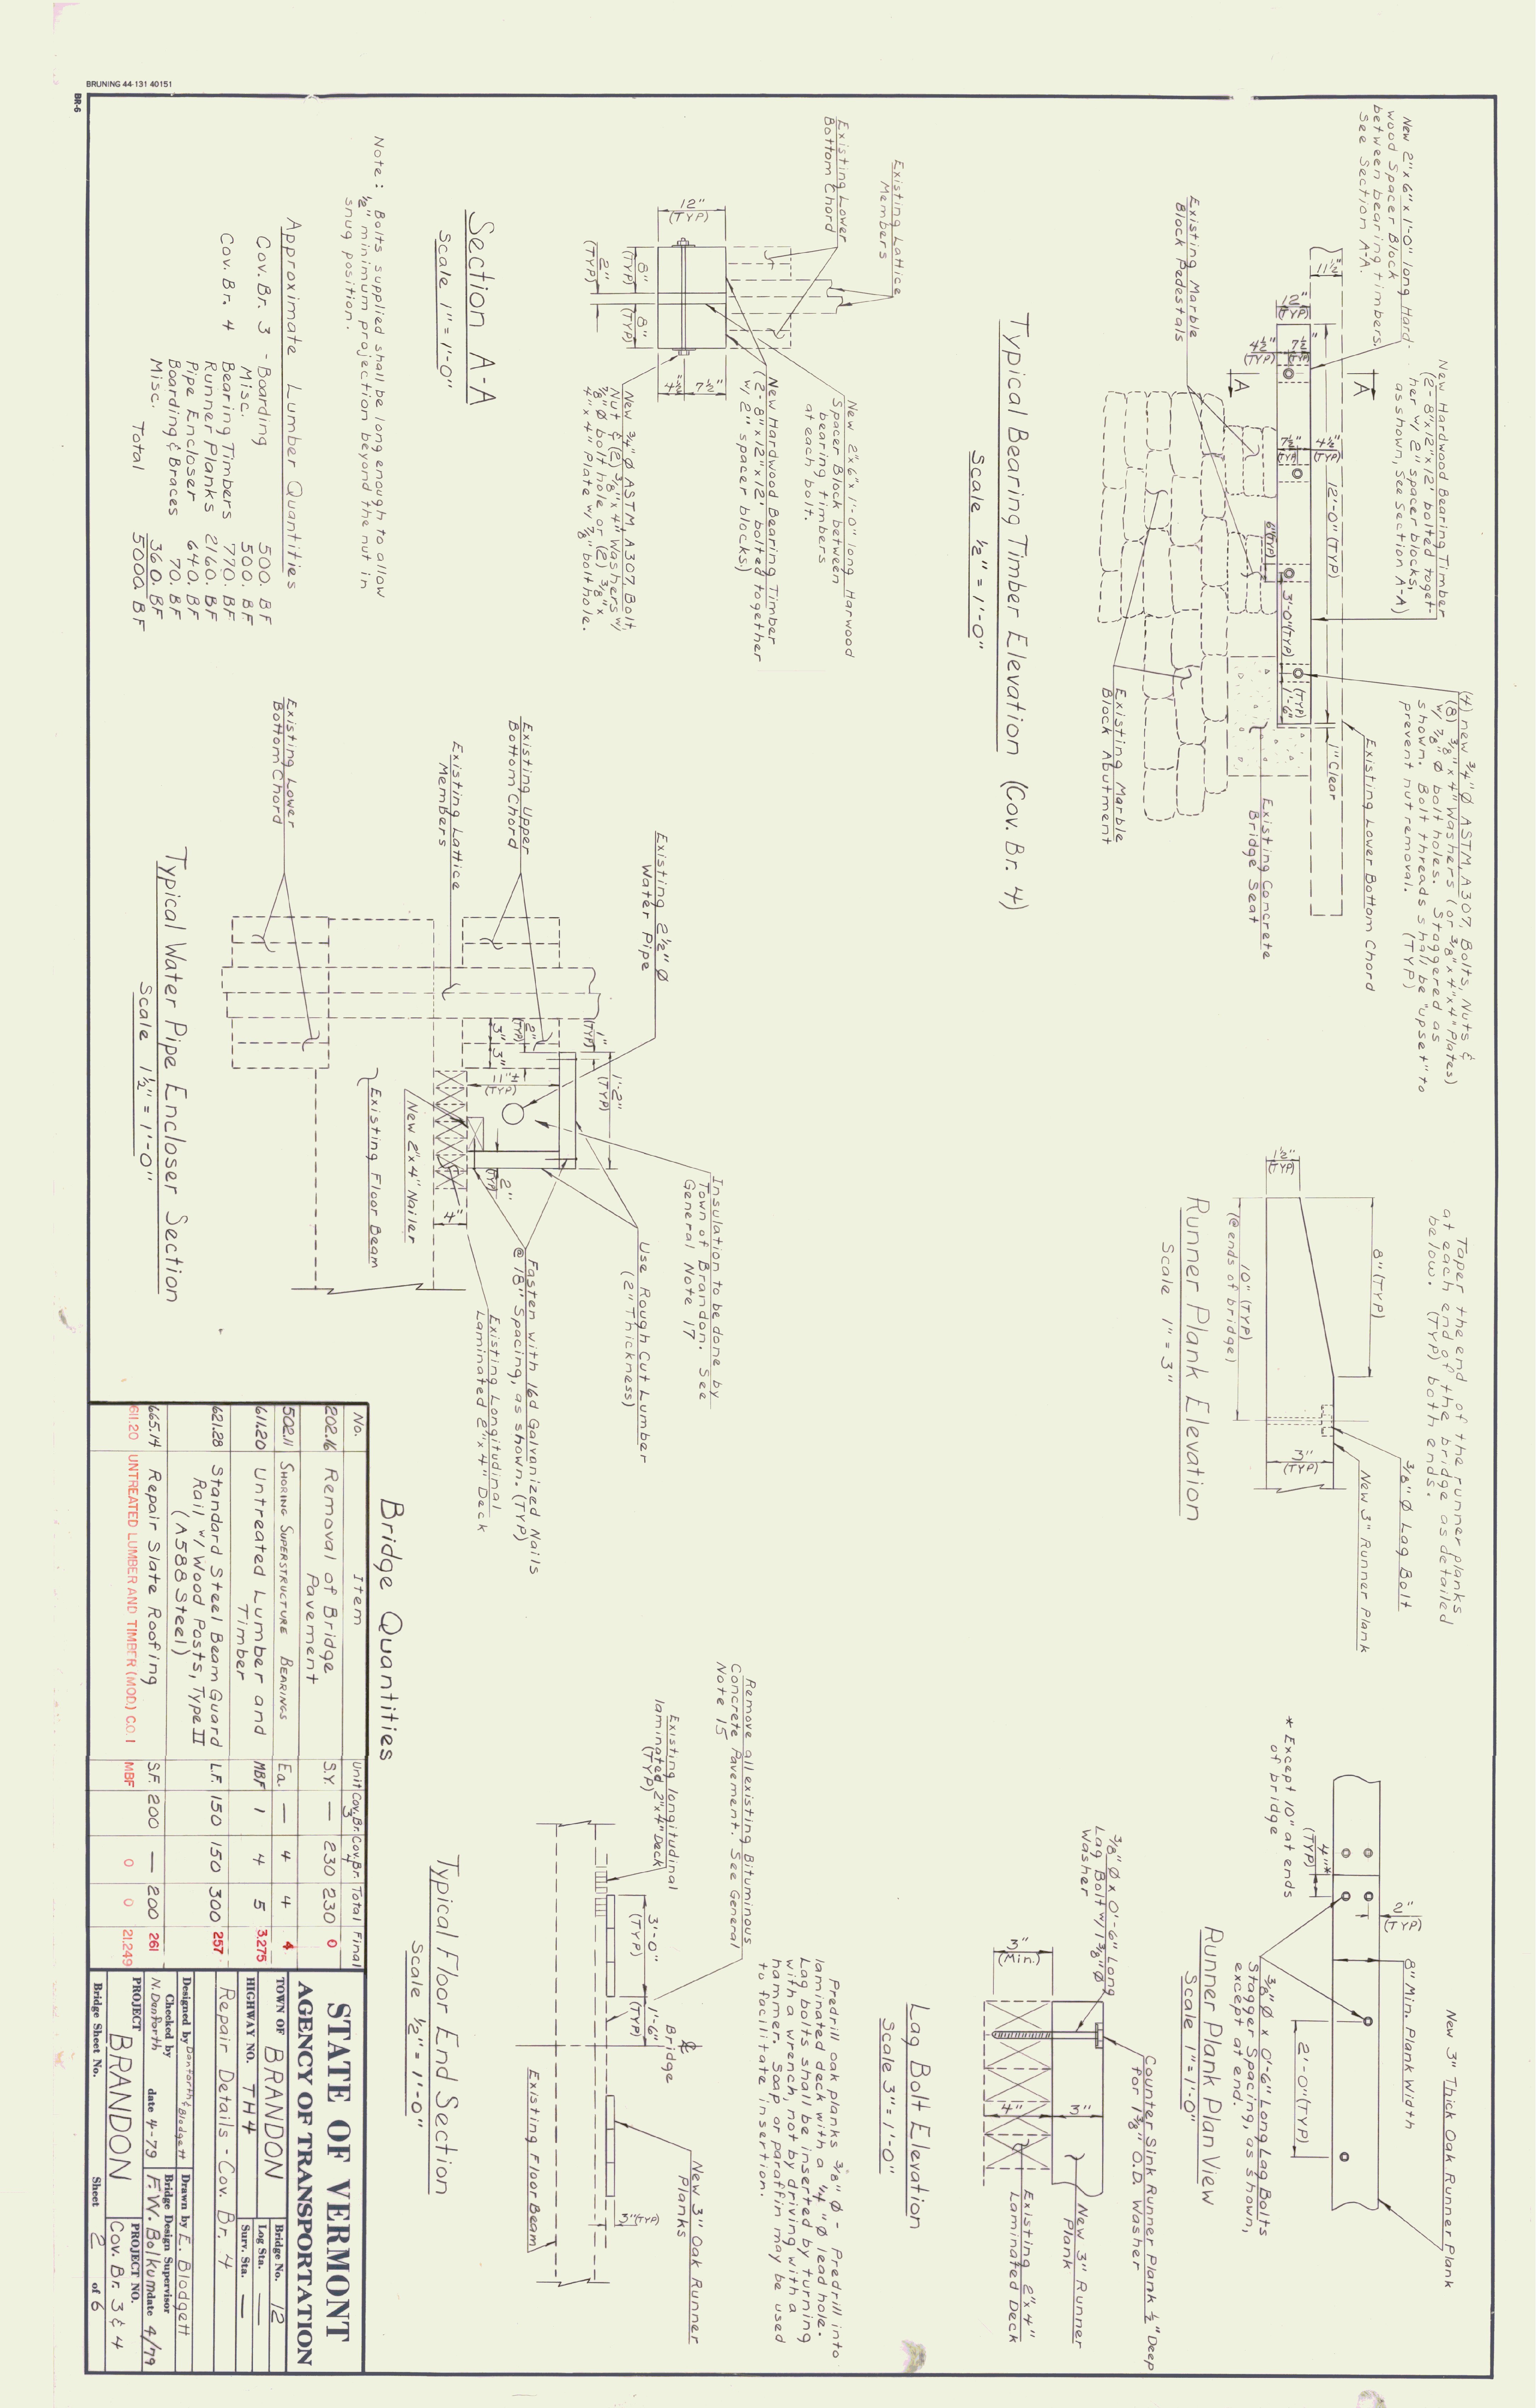 BRUNING 44-131 40151
BR-6
New 2"x 6"x 1'-0" long Hard-
wood Spacer Block
between bearing timbers.
See Section A-A.
New Hardwood Bearing Timber
(2-8"x12"x12' bolted toget-
her w/ 2" spacer blocks,
as shown, See Section A-A)
(4) new 3/4" Ø ASTM, A307, Bolts, Nuts &
(8) 3/8" x 4" Washers (or 3/8"x 4"x 4" Plates)
w/ 7/8" Ø bolt holes. Staggered as
shown. Bolt threads shall be "upset" to
prevent nut removal. (TYP)
11½"
12"
(TYP)
4½"
(TYP)
7½"
(TYP)
A
A
7½"
(TYP)
4½"
(TYP)
12'-0" (TYP)
6"(TYP)
3'-0"(TYP)
1'-6"
(TYP)
1" Clear
Existing Lower Bottom Chord
Existing Marble
Block Pedestals
Existing Concrete
Bridge Seat
Existing Marble
Block Abutment
Typical Bearing Timber Elevation (Cov. Br. 4)
Scale ½" = 1'-0"
Taper the end of the runner planks
at each end of the bridge as detailed
below. (TYP) both ends.
8" (TYP)
3/8" Ø Lag Bolt
New 3" Runner Plank
1½"
(TYP)
3"
(TYP)
10" (TYP)
(@ ends of bridge)
Runner Plank Elevation
Scale 1" = 3"
New 3" Thick Oak Runner Plank
8" Min. Plank Width
2"
(TYP)
4"*
(TYP)
2'-0"(TYP)
* Except 10" at ends
of bridge
3/8" Ø x 0'-6" Long Lag Bolts
Stagger Spacing, as shown,
except at end.
Runner Plank Plan View
Scale 1" = 1'-0"
Existing Lattice
Members
Existing Lower
Bottom Chord
12"
(TYP)
8"
(TYP)
2"
(TYP)
8"
(TYP)
4½"
7½"
New 2"x 6"x 1'-0" long Harwood
Spacer Block between
bearing timbers
at each bolt.
New Hardwood Bearing Timber
(2-8"x12"x12' bolted together
w/ 2" spacer blocks)
New 3/4" Ø ASTM, A307, Bolt,
Nut & (2) 3/8"x 4" Washers w/
7/8" Ø bolt hole or (2) 3/8" x
4"x 4" Plate w/ 7/8" bolt hole.
Section A-A
Scale 1" = 1'-0"
Note: Bolts supplied shall be long enough to allow
½" minimum projection beyond the nut in
snug position.
Approximate Lumber Quantities
Cov. Br. 3 - Boarding 500. BF
Misc. 500. BF
Cov. Br. 4 Bearing Timbers 770. BF
Runner Planks 2160. BF
Pipe Encloser 640. BF
Boarding & Braces 70. BF
Misc. 360. BF
Total 5000. BF
Existing 2½" Ø
Water Pipe
Insulation to be done by
Town of Brandon. See
General Note 17
Use Rough Cut Lumber
(2" Thickness)
1"
(TYP)
1'-2"
(TYP)
2"
(TYP)
3"
3"
11"±
(TYP)
2"
(TYP)
4"
Existing Upper
Bottom Chord
Fasten with 16d Galvanized Nails
@ 18" Spacing, as shown. (TYP)
Existing Longitudinal
Laminated 2"x 4" Deck
Existing Lattice
Members
New 2"x 4" Nailer
Existing Floor Beam
Existing Lower
Bottom Chord
Typical Water Pipe Encloser Section
Scale 1½" = 1'-0"
3/8" Ø x 0'-6" Long
Lag Bolt w/ 1 3/8" Ø
Washer
Counter Sink Runner Plank ½" Deep
for 1 3/8" O.D. Washer
New 3" Runner
Plank
Existing 2"x 4"
Laminated Deck
3"
(Min.)
3"
4"
Lag Bolt Elevation
Scale 3" = 1'-0"
Predrill oak planks 3/8" Ø - Predrill into
laminated deck with a 1/4" Ø lead hole.
Lag bolts shall be inserted by turning
with a wrench, not by driving with a
hammer. Soap or paraffin may be used
to facilitate insertion.
Remove all existing Bituminous
Concrete Pavement. See General
Note 15
Existing longitudinal
laminated 2"x 4" Deck
(TYP)
3'-0"
(TYP)
1'-6"
(TYP)
℄
Bridge
New 3" Oak Runner
Planks
3"(TYP)
Existing Floor Beam
Typical Floor End Section
Scale ½" = 1'-0"
Bridge Quantities
No. Item Unit Cov. Br. 3 Cov. Br. 4 Total Final
202.16 Removal of Bridge S.Y. — 230 230 0
Pavement
502.11 SHORING SUPERSTRUCTURE BEARINGS Ea. — 4 4 4
611.20 Untreated Lumber and MBF 1 4 5 3.275
Timber
621.28 Standard Steel Beam Guard L.F. 150 150 300 257
Rail w/ Wood Posts, Type II
(A588 Steel)
665.14 Repair Slate Roofing S.F. 200 — 200 261
611.20 UNTREATED LUMBER AND TIMBER (MOD.) C.O. 1 MBF 0 0 21.249
STATE OF VERMONT
AGENCY OF TRANSPORTATION
TOWN OF BRANDON Bridge No. 12
HIGHWAY NO. TH4 Log Sta. —
Surv. Sta. —
Repair Details - Cov. Br. 4
Designed by Danforth & Blodgett Drawn by E. Blodgett
Checked by Bridge Design Supervisor
N. Danforth date 4-79 F.W. Bolkum date 4/79
PROJECT BRANDON PROJECT NO. Cov. Br. 3 & 4
Bridge Sheet No. Sheet 2 of 6